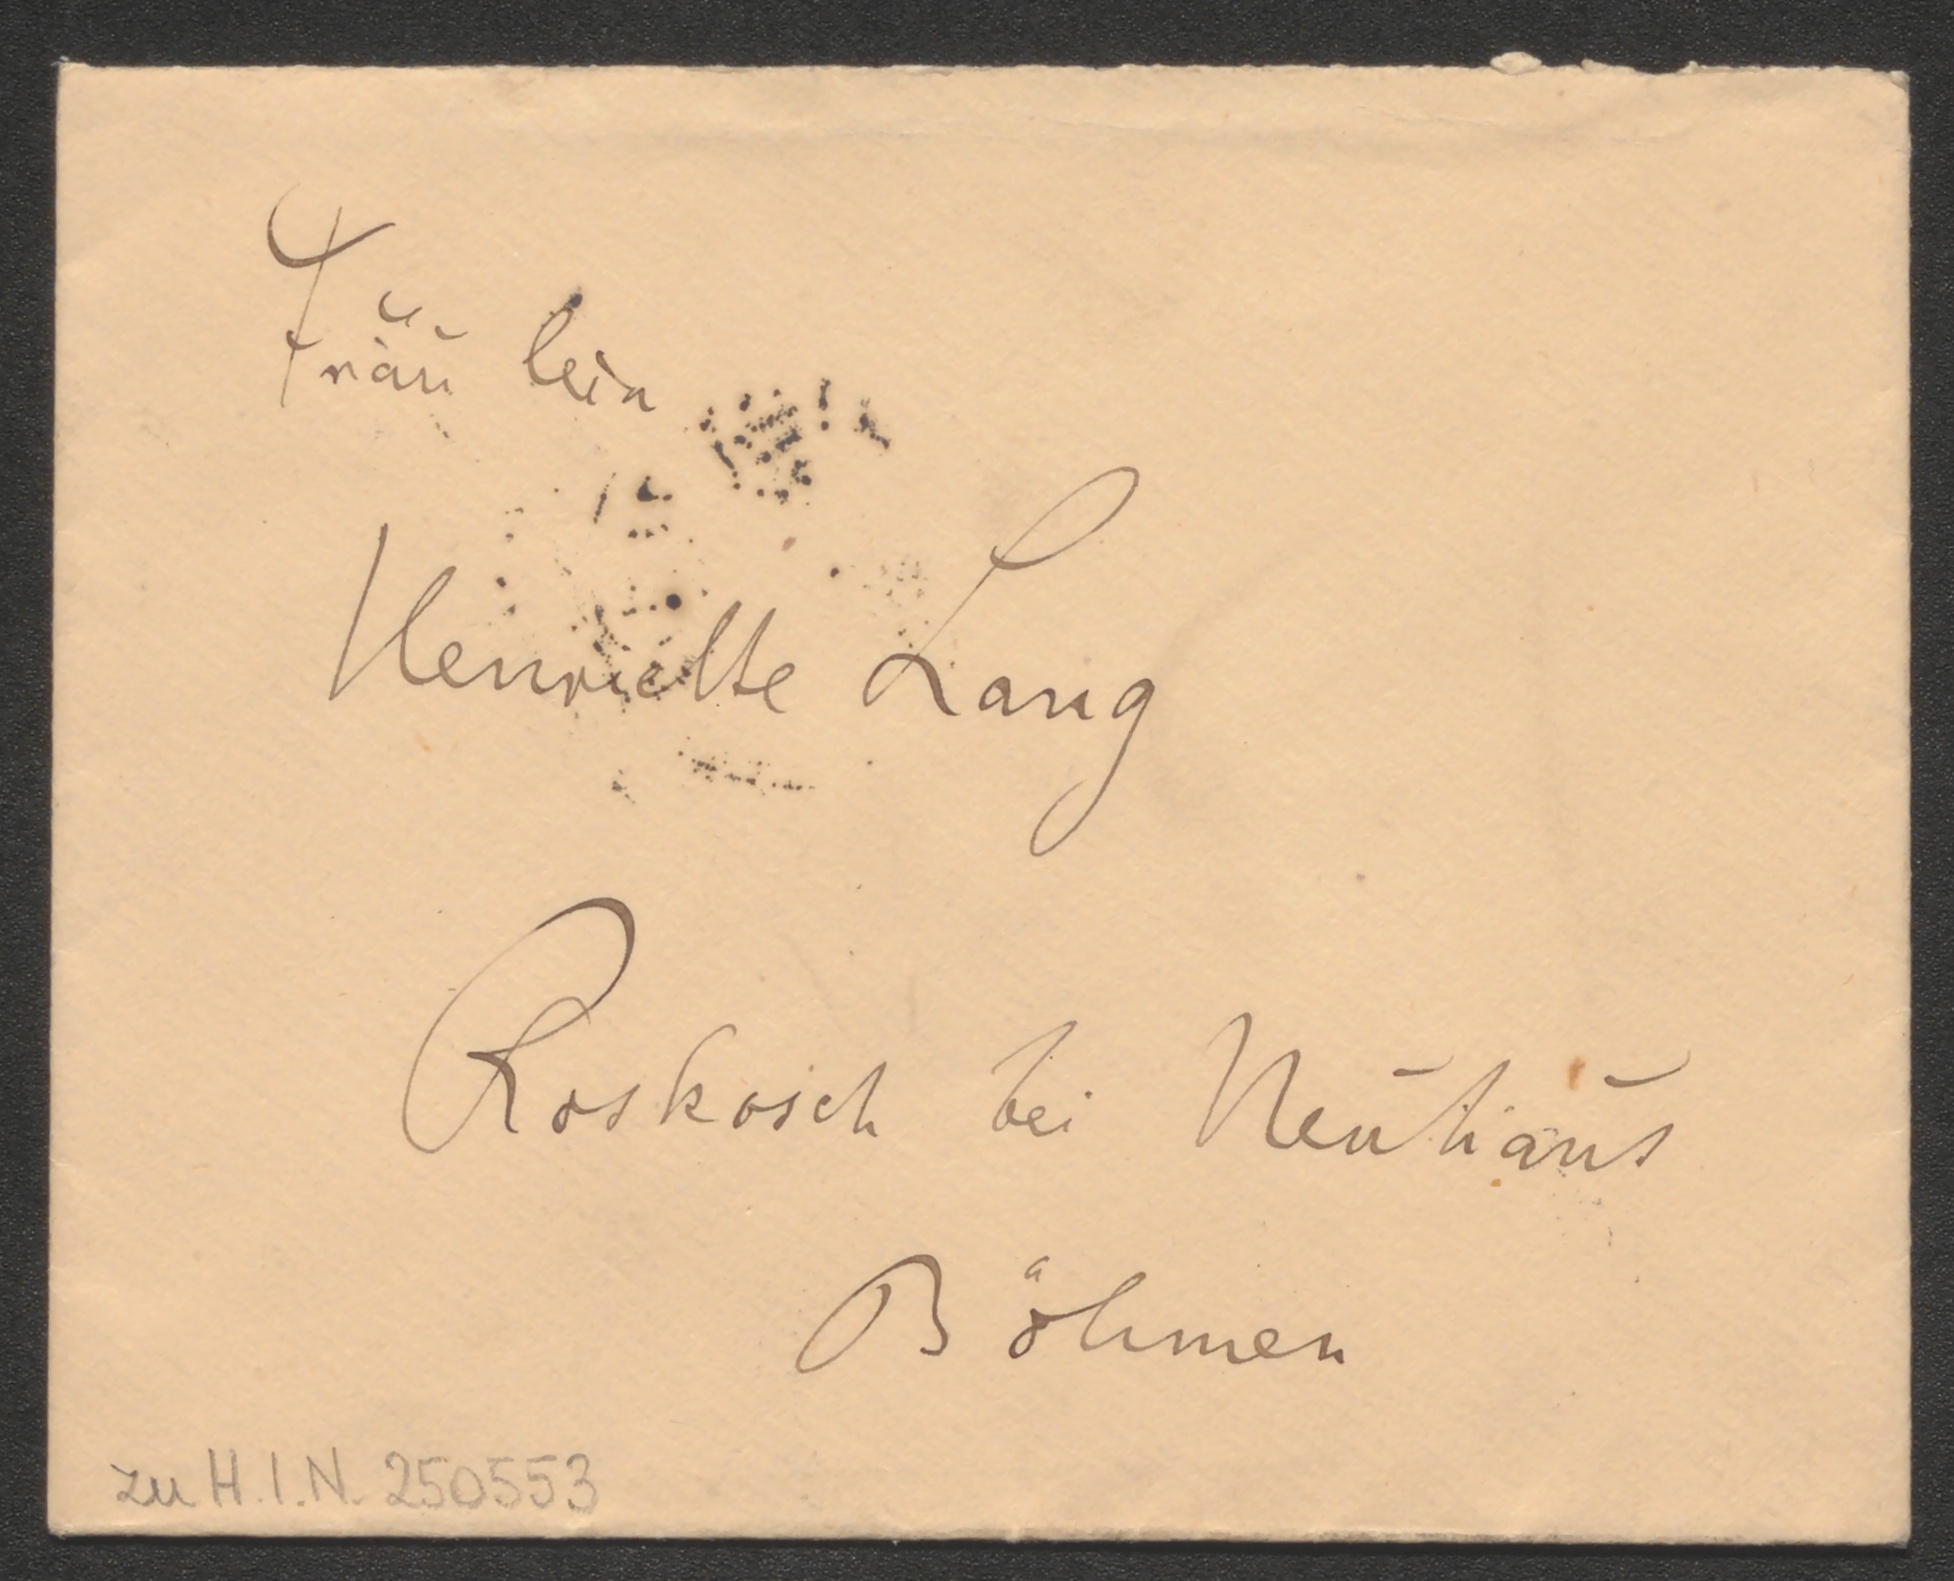 Fräulein
Henriette Lang
Roskosch bei Neuhaus
Böhmen
zu H.I.N. 250553